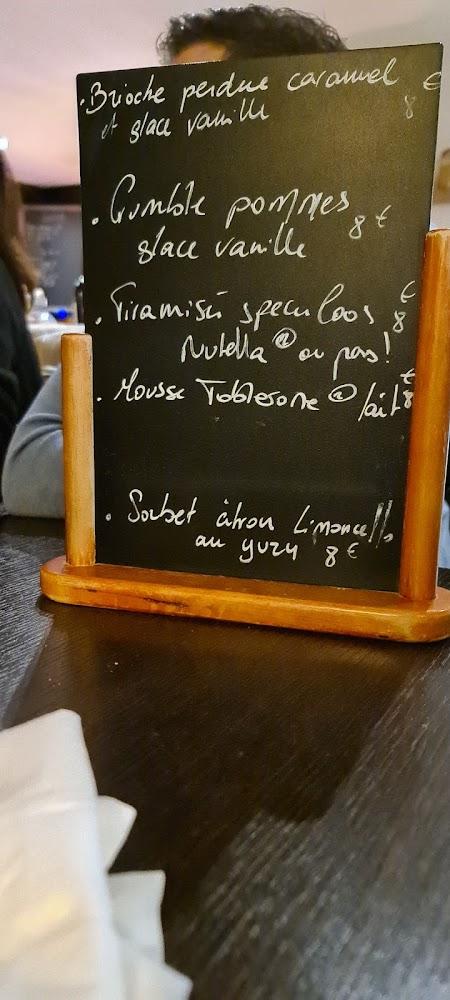 . Brioche perdue caramel 8 €
et glace vanille
. Crumble pommes 8 €
glace vanille
. Tiramisù speculoos 8 €
Nutella ® ou pas!
. Mousse Toblerone ® lait 8 €
. Sorbet citron Limoncello
au yuzu 8 €